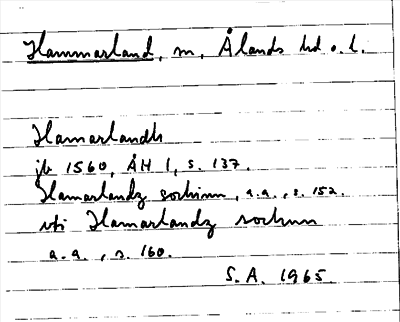 Hammarland, sn, Ålands hd o. l.
Hamarlandh
jb 1560, ÅH 1, s. 137.
Hamarlandz sochnn, a.a., s. 152.
uti Hamarlandz sochnn
a.a., s. 160.
S.A. 1965